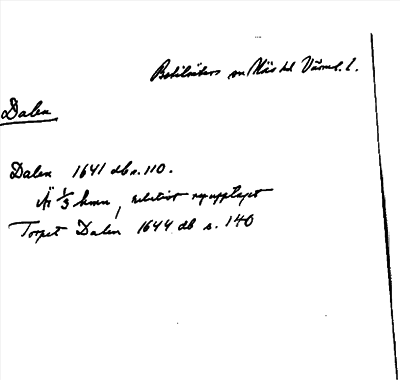 sn Näs hd Värml. l.
Dalen
Dalen 1641 db s. 110.
Är 1/3 hmn, relativt nyupptaget
Torpet Dalen 1644 db s. 140